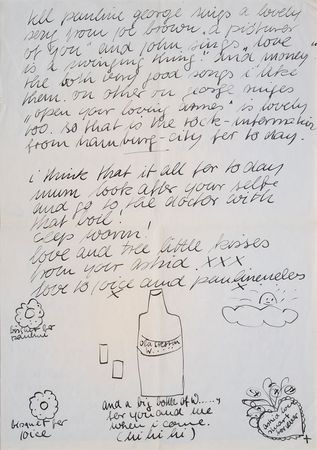 tell pauline george sings a lovely
song from joe brown „a picturer
of you" and john sings „love
is a swinging thing" and money
the both very good songs i like
them. on other on george singes
„open your loving armes" is lovely
too. so that is the rock-information
from hamburg-city for to day.
i think that it all for to day
mum look after your selve
and go to the doctor with
that boil!
ceep worm!
love and tree little kisses
from your astrid. xxx
love to loice and paulineneles
bisquet for
pauline
old
W.....
bisquet for
loice
and a big bottle of W......,
for you and me
when i come.
(hi hi hi)
and a